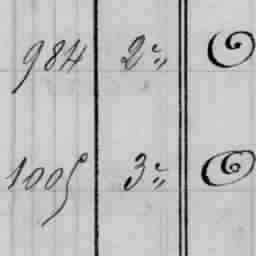 984 2 "
1005 3 "